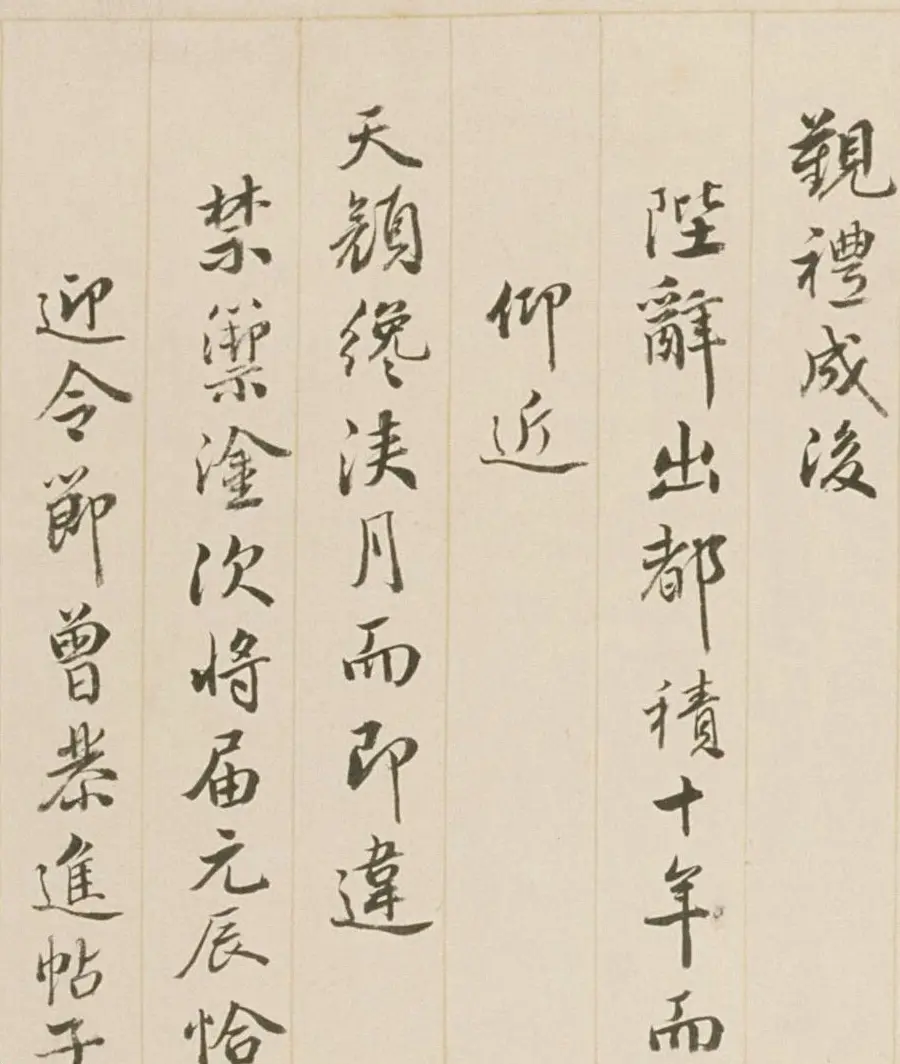 覲禮成後
陛辭出都積十年而
仰近
天顔纔浹月而即違
禁禦塗次將届元辰恰
迎令節曾恭進帖子